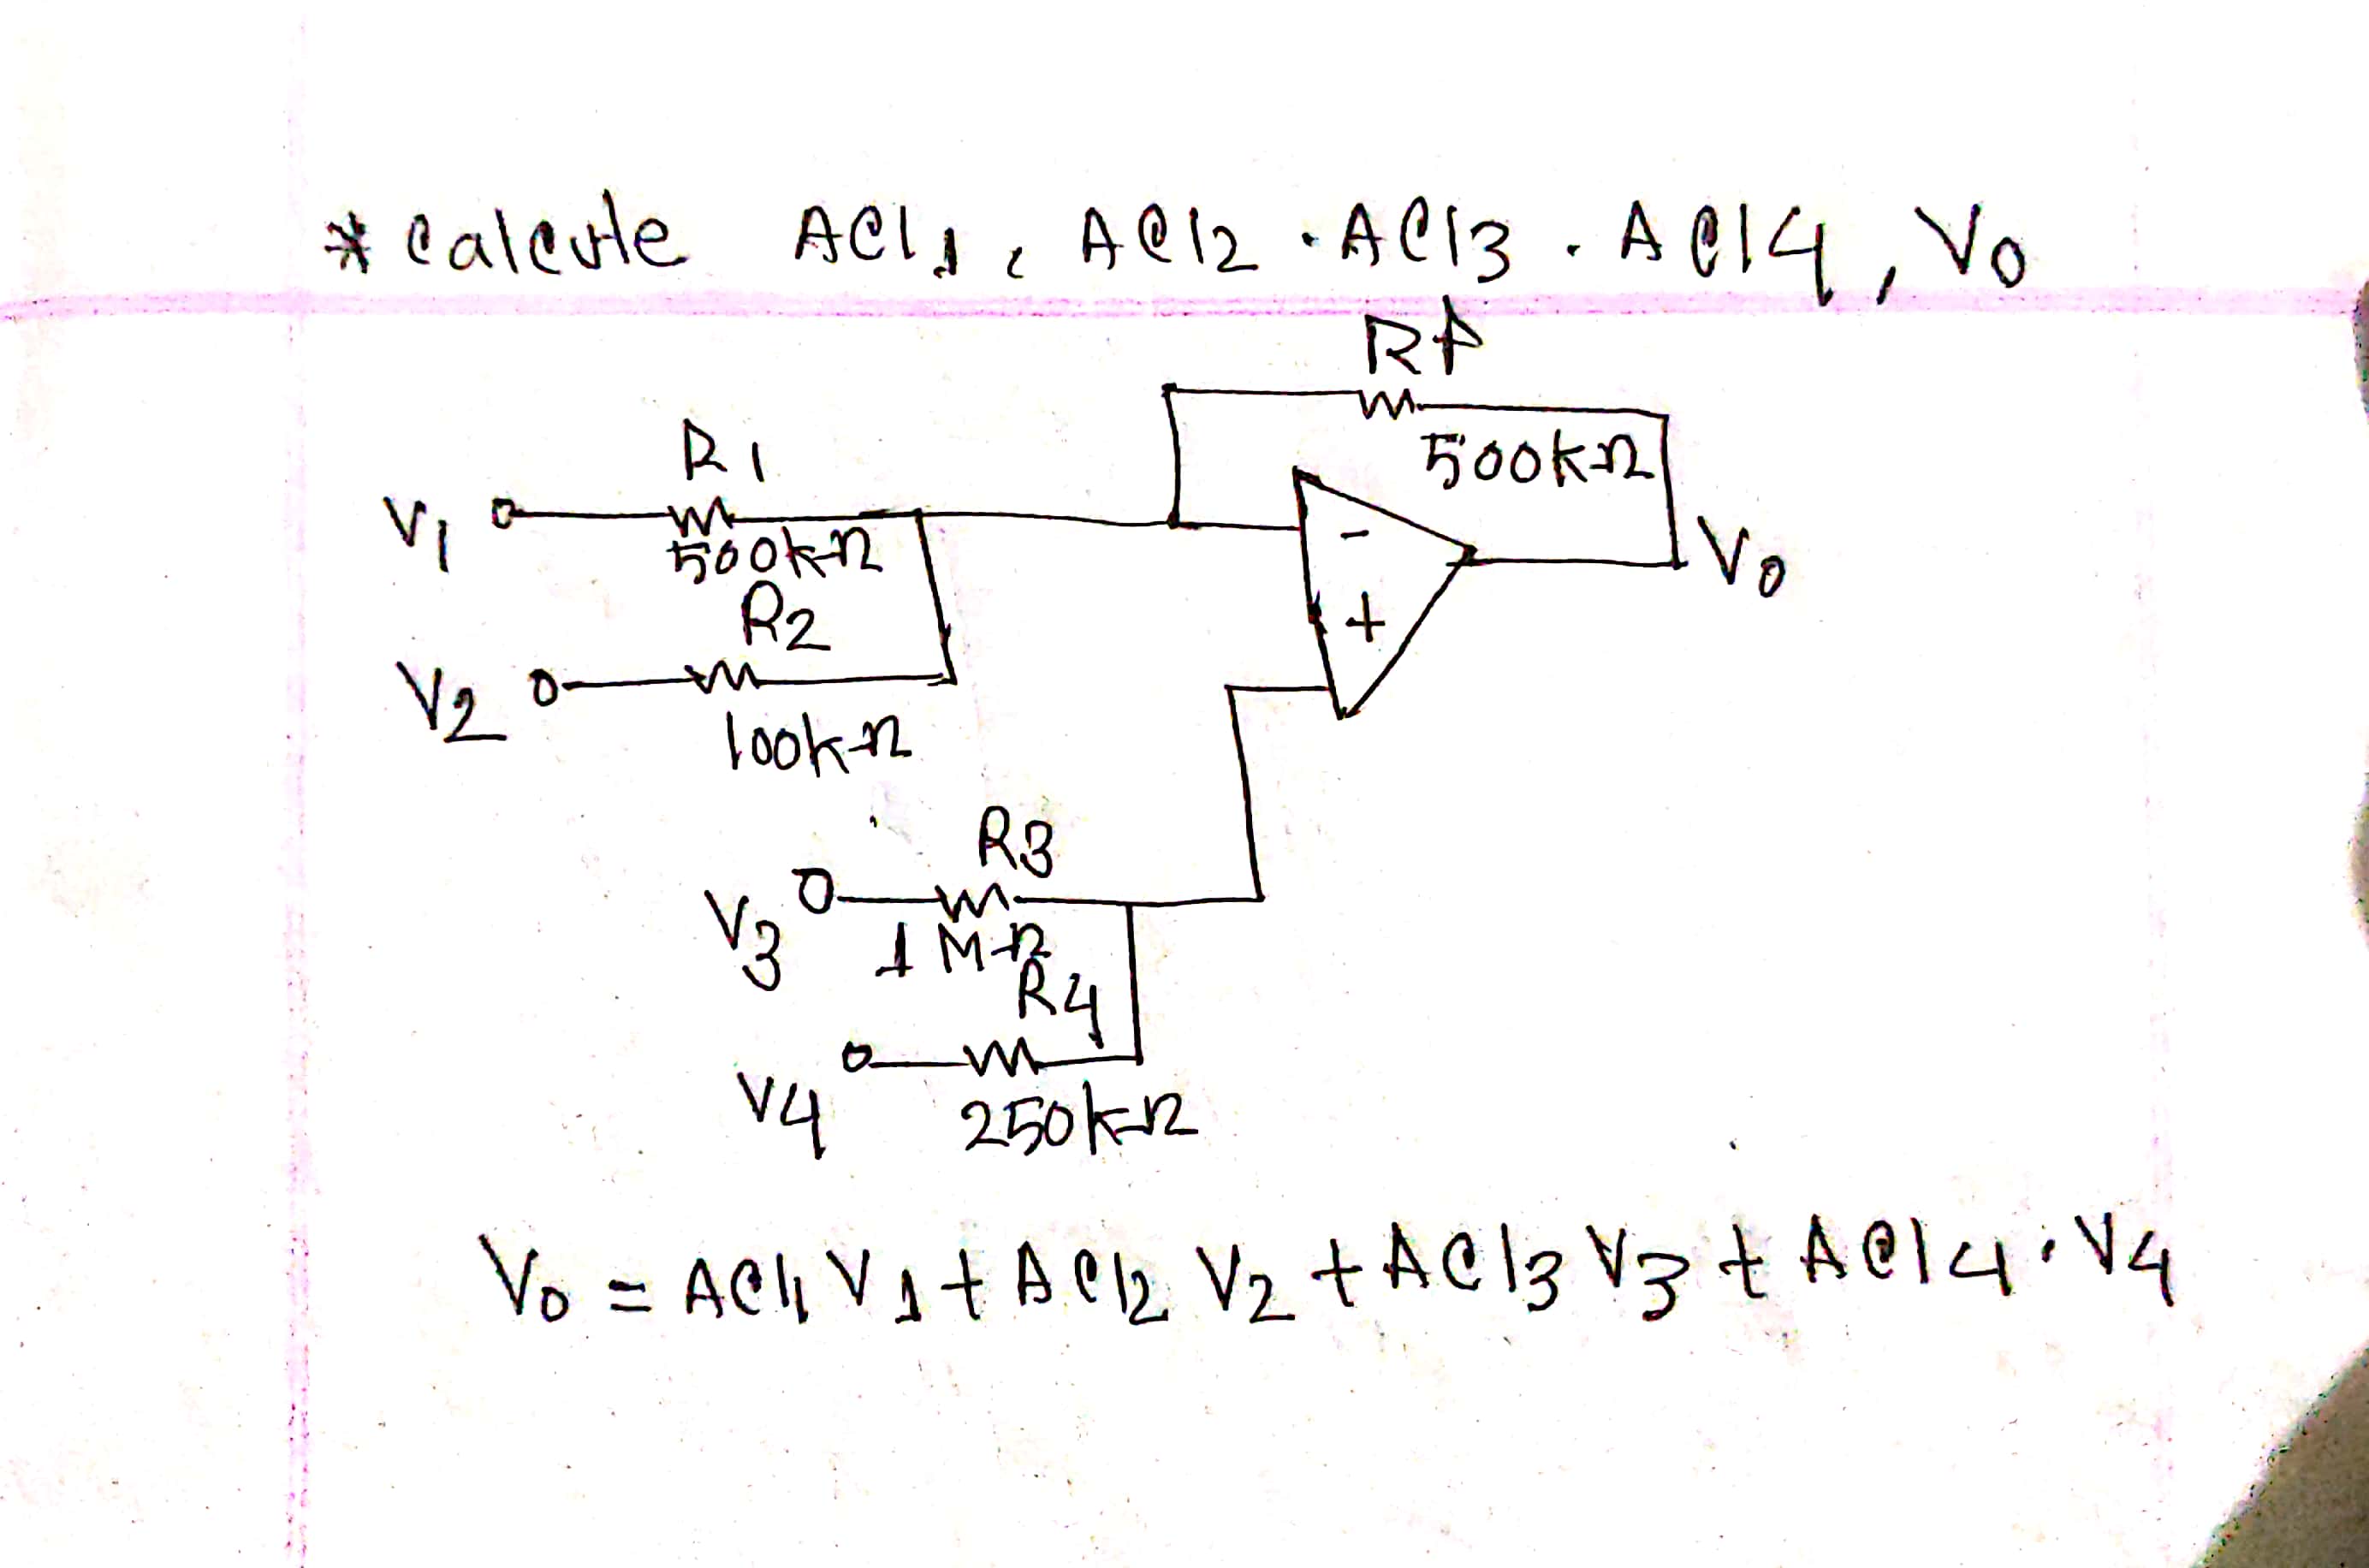 * calcute ACl1, ACl2 . ACl3 . ACl4, V0
Rf
500kΩ
R1
V1
500kΩ
R2
V2
100kΩ
-
+
V0
R3
V3
1MΩ
R4
V4
250kΩ
V0 = ACl1 V1 + ACl2 V2 + ACl3 V3 + ACl4 . V4